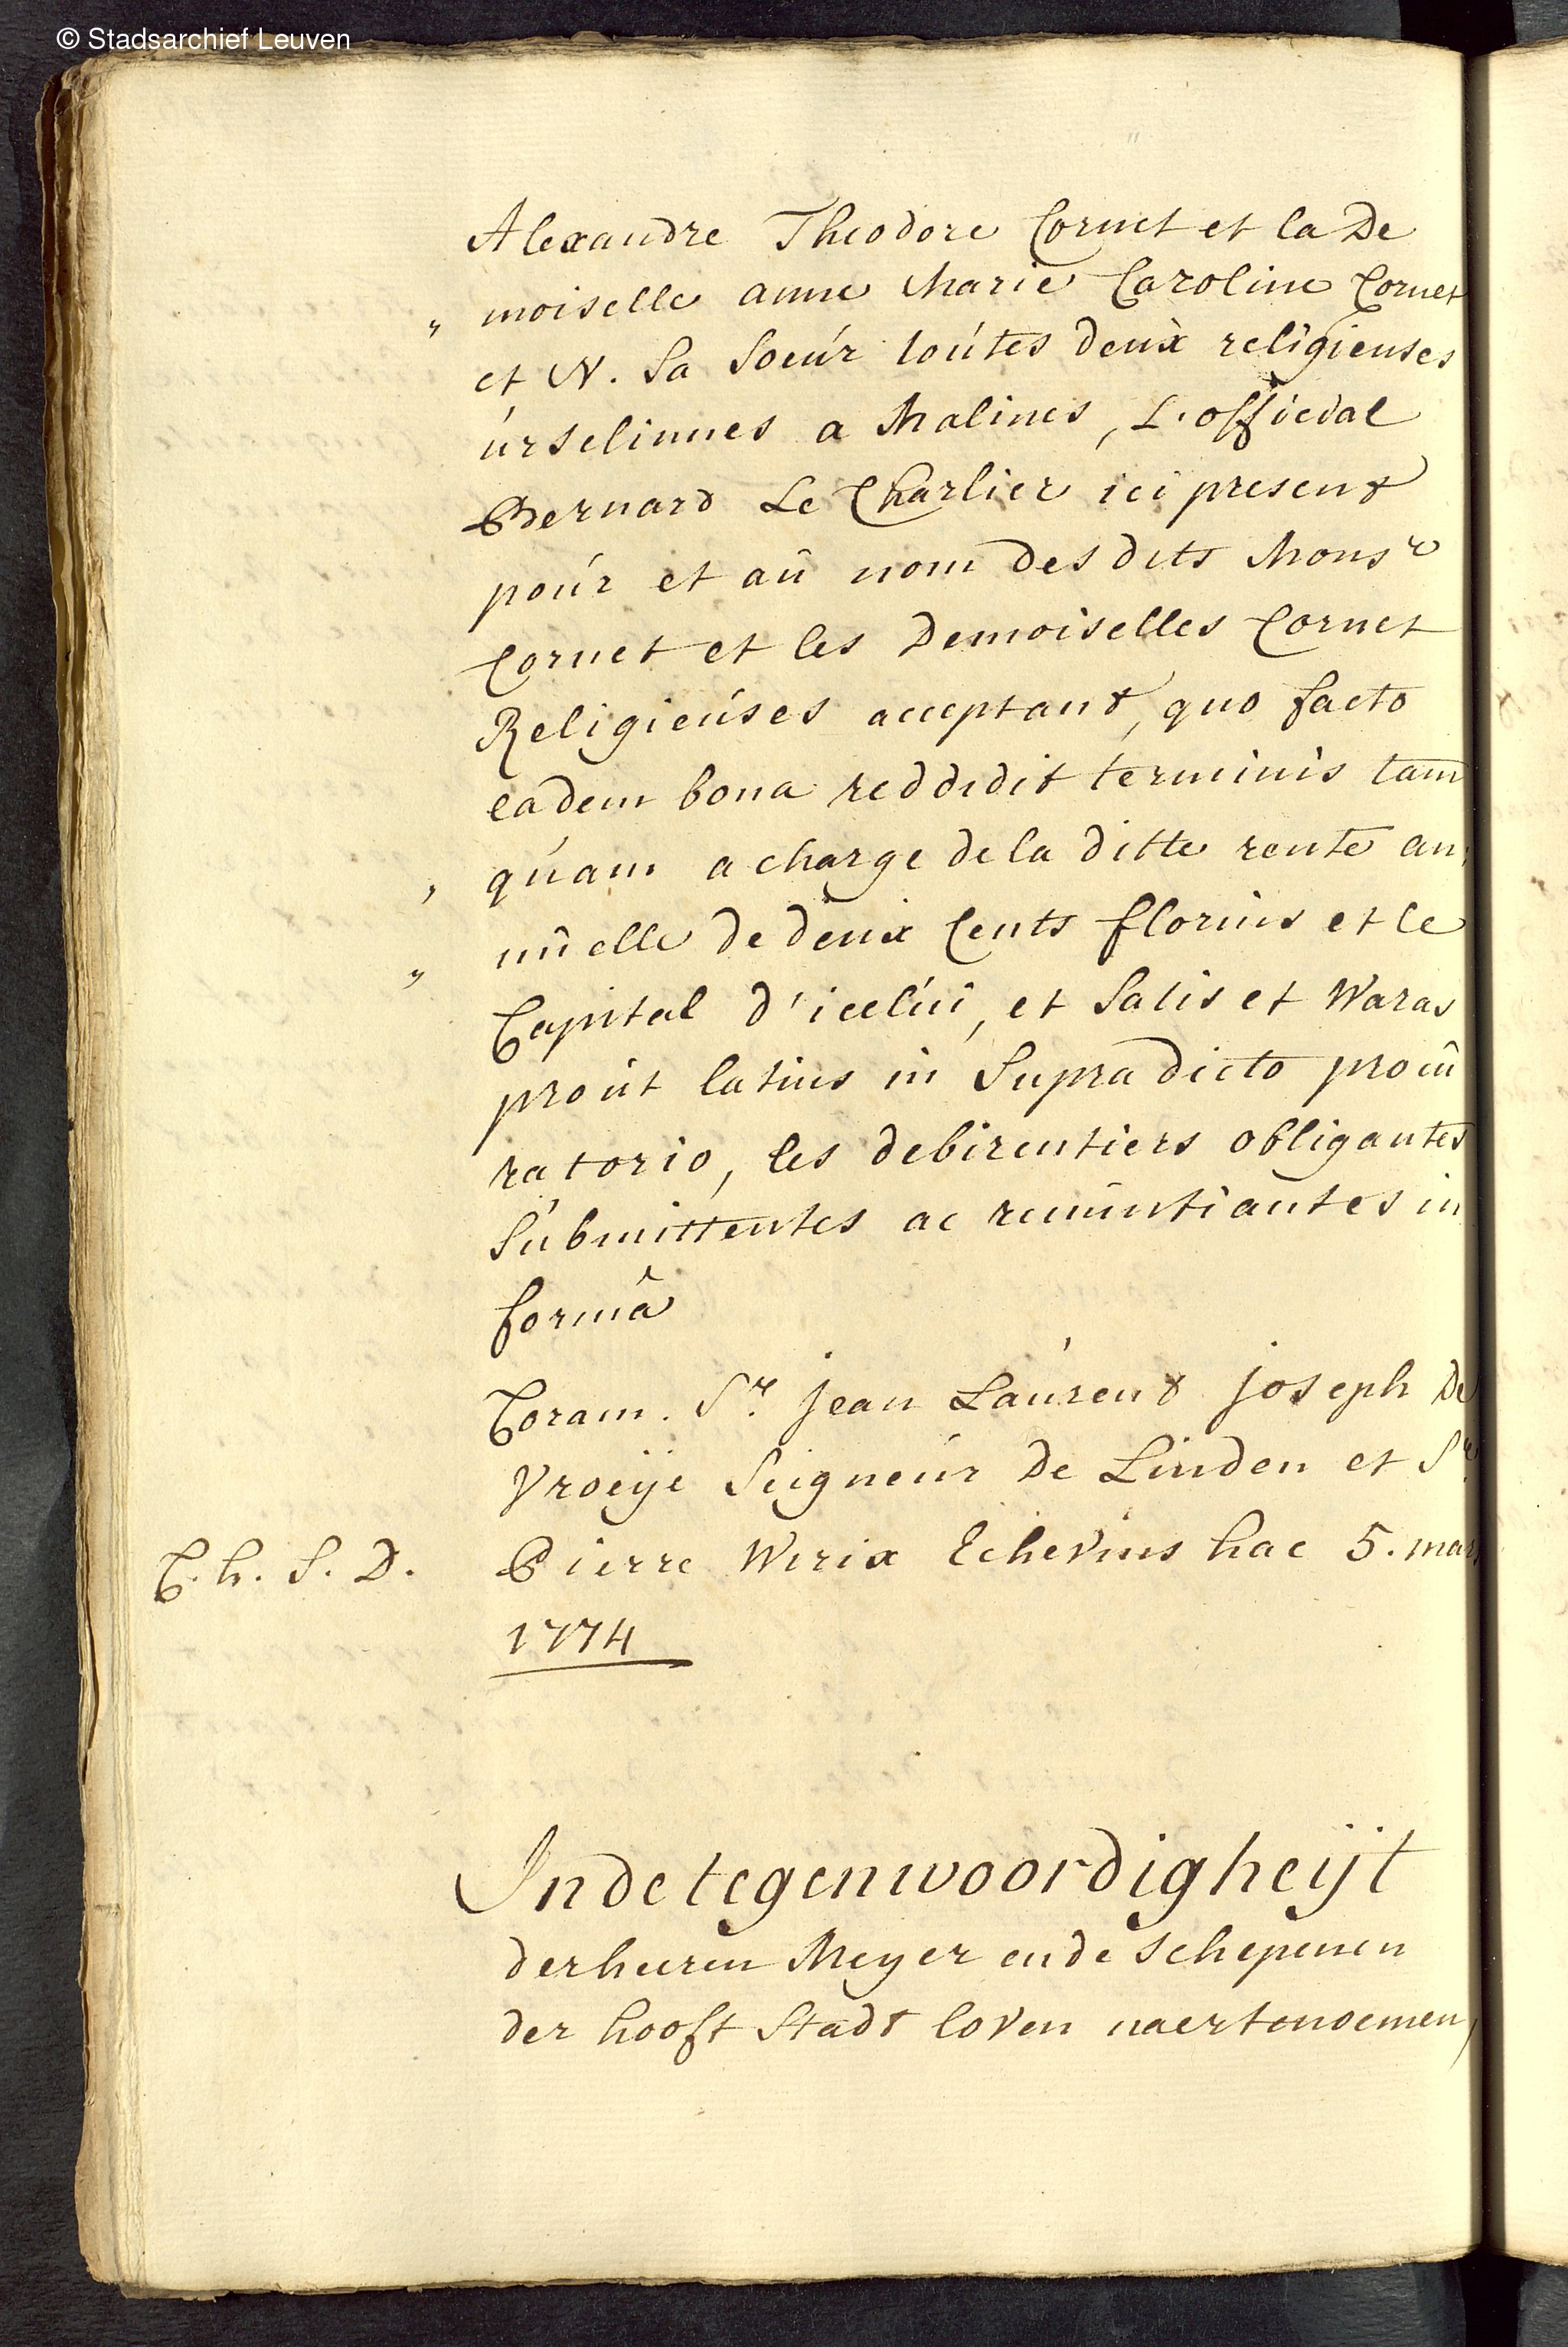 © Stadsarchief Leuven
Alexandre Theodore Cornet et la De
„ moiselle anne Marie Caroline Cornet
et N. sa soeur toutes deux religieuses
urselinnes a Malines, L'official
Bernard Le Charlier ici present
pour et au nom des dits Monsr
Cornet et les Demoiselles Cornet
Religieuses acceptant, quo facto
eadem bona reddidit terminis tam
, quam a charge de la ditte rente an
„ nuelle de deux Cents florins et le
Capital d'icelui, et satis et Waras
prout latius in supradicto procu
ratorio, les debirentiers obligantes
submittentes ac renuntiantes in
formâ
Coram. Sr. jean Laurent joseph De
Vroeije Seigneur De Linden et Sr
C. h. S. D. Pierre Wirix Echevins hac 5. mar
1774
In de tegenwoordigheijt
der heeren Meyer ende schepenen
der hooft stadt loven naertenoemen,